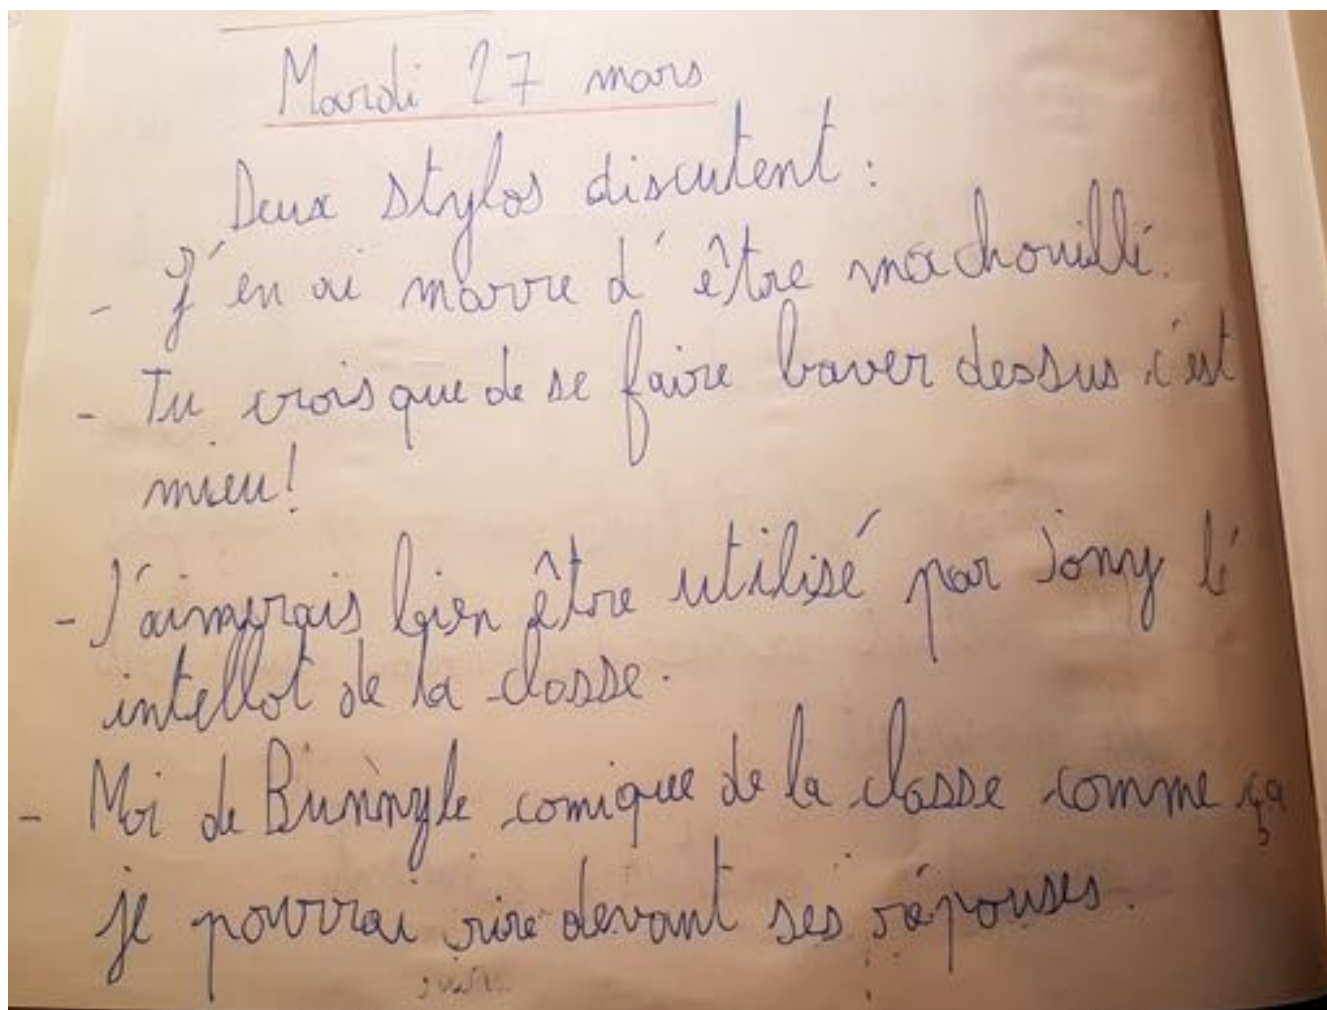 Mardi 27 mars
Deux stylos discutent :
- J'en ai marre d'être machouillé.
- Tu crois que de se faire baver dessus c'est
mieu!
- J'aimerais bien être utilisé par Jony l'
intellot de la classe.
- Moi de Bunny le comique de la classe comme ça
je pourrai rire devant ses réponses.